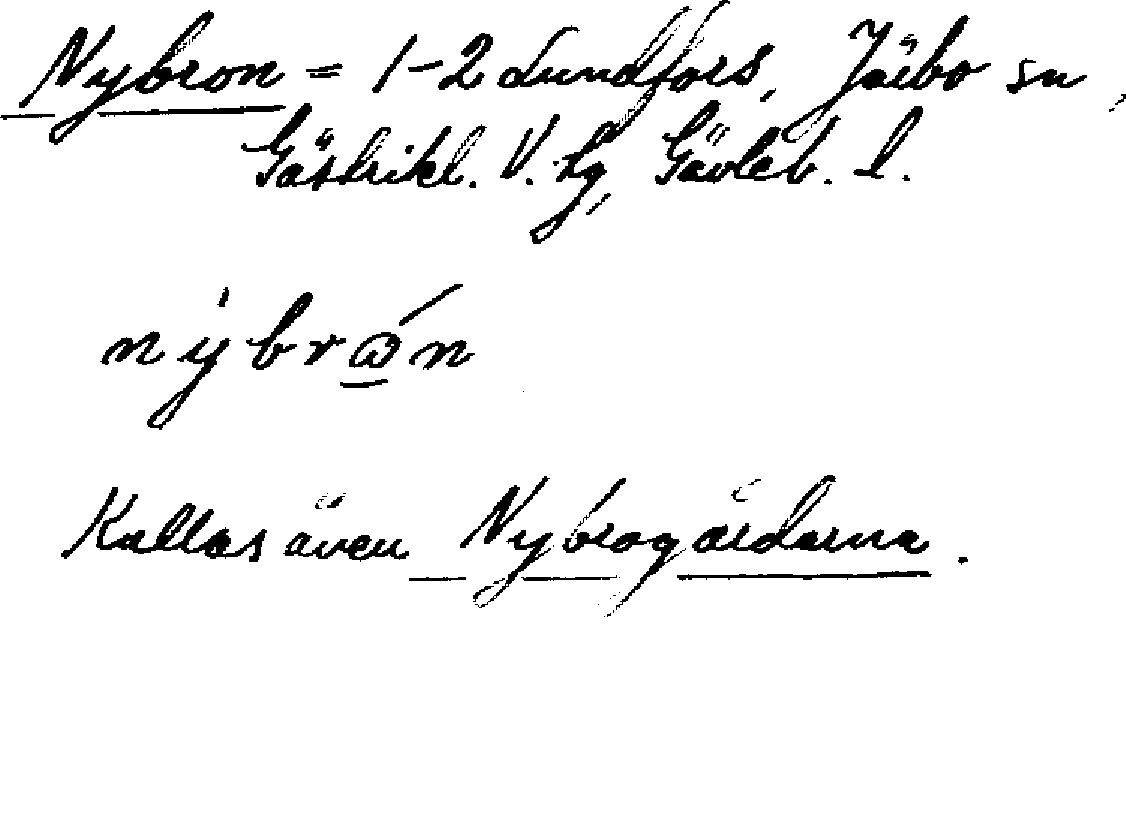 Nybron = 1-2 Lundfors, Järbo sn,
Gästrikl. V. tg, Gävleb. l.
nýbrώ̲n
Kallas även Nybrogårdarna.